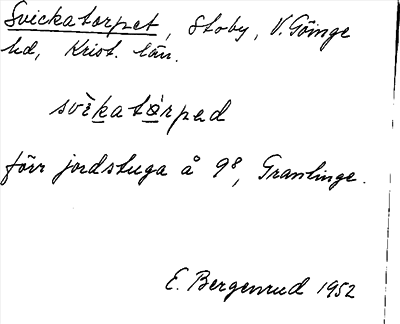 Svickatorpet, Stoby, V. Göinge
hd, Krist. län.
svi̊katå̀rpəd
förr jordstuga å 9⁸, Granlinge.
E. Bergenrud 1952